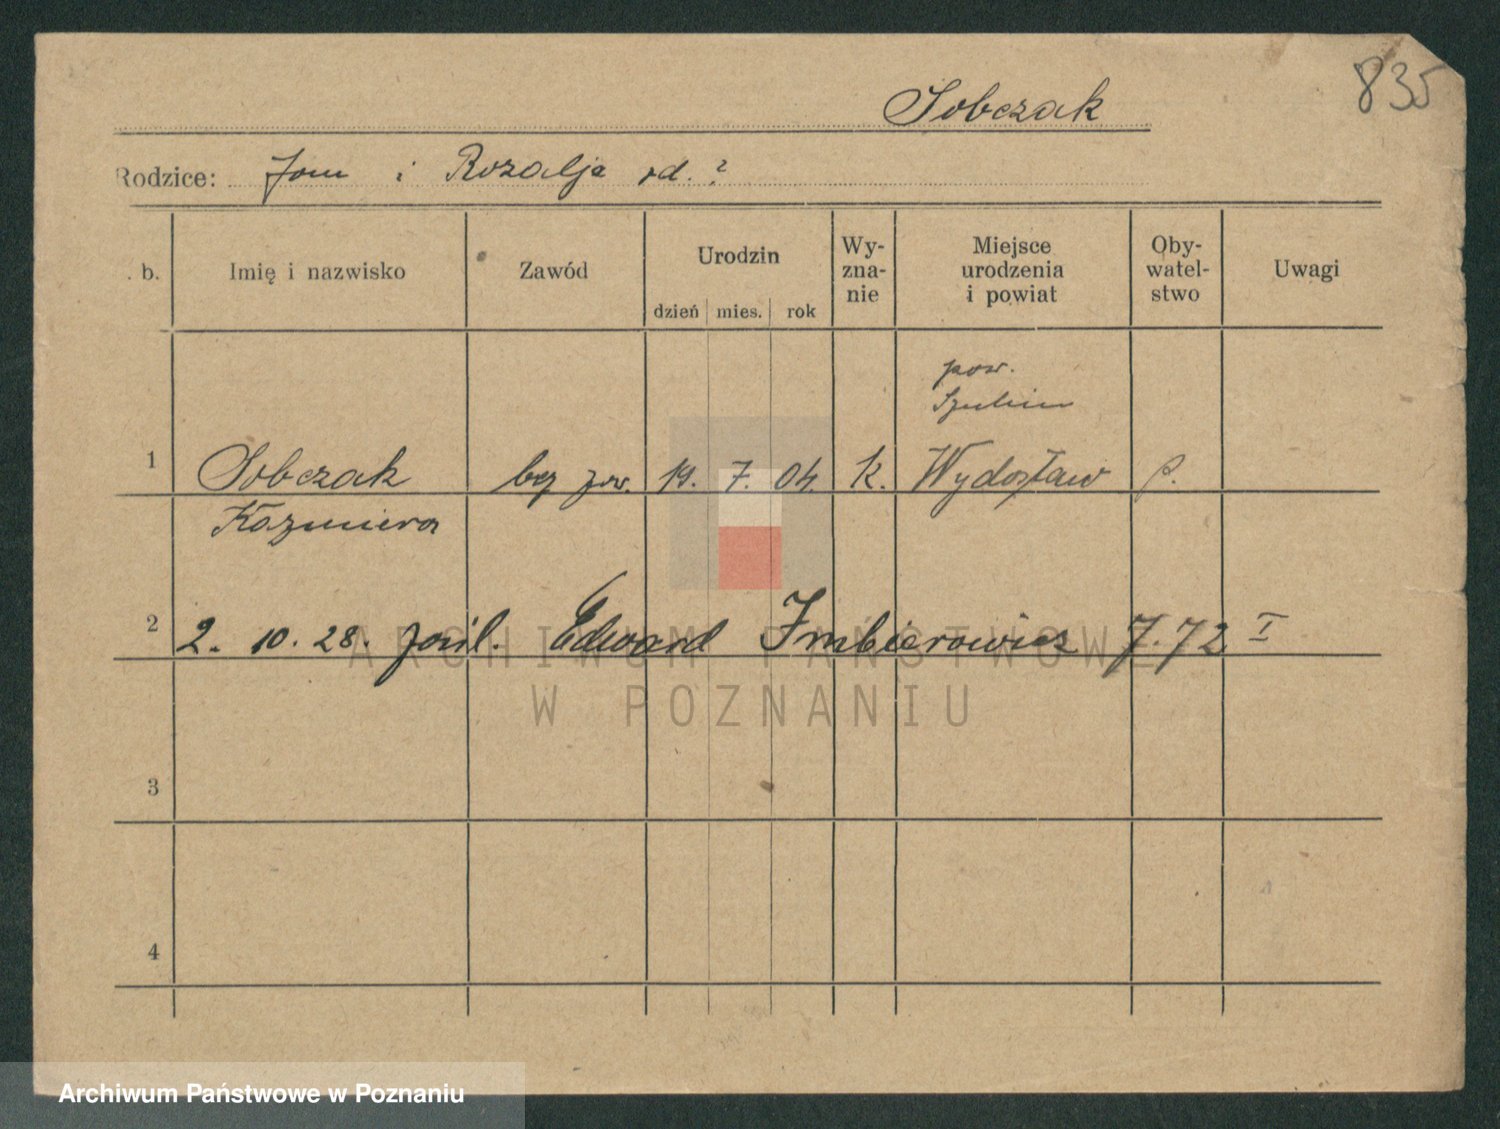 835
Sobczak
Rodzice: Jan i Rozalja rd. ?
. b. Imię i nazwisko Zawód Urodzin Wy- Miejsce Oby- Uwagi
zna- urodzenia watel-
dzień mies. rok nie i powiat stwo
pow.
Szubin
1 Sobczak bez zaw. 19. 7. 04. K. Wydostaw P.
Kazimiera
2 2. 10. 28. Edward Imbierowicz J. 72 I
3
4
ARCHIWUM PAŃSTWOWE
W POZNANIU
Archiwum Państwowe w Poznaniu